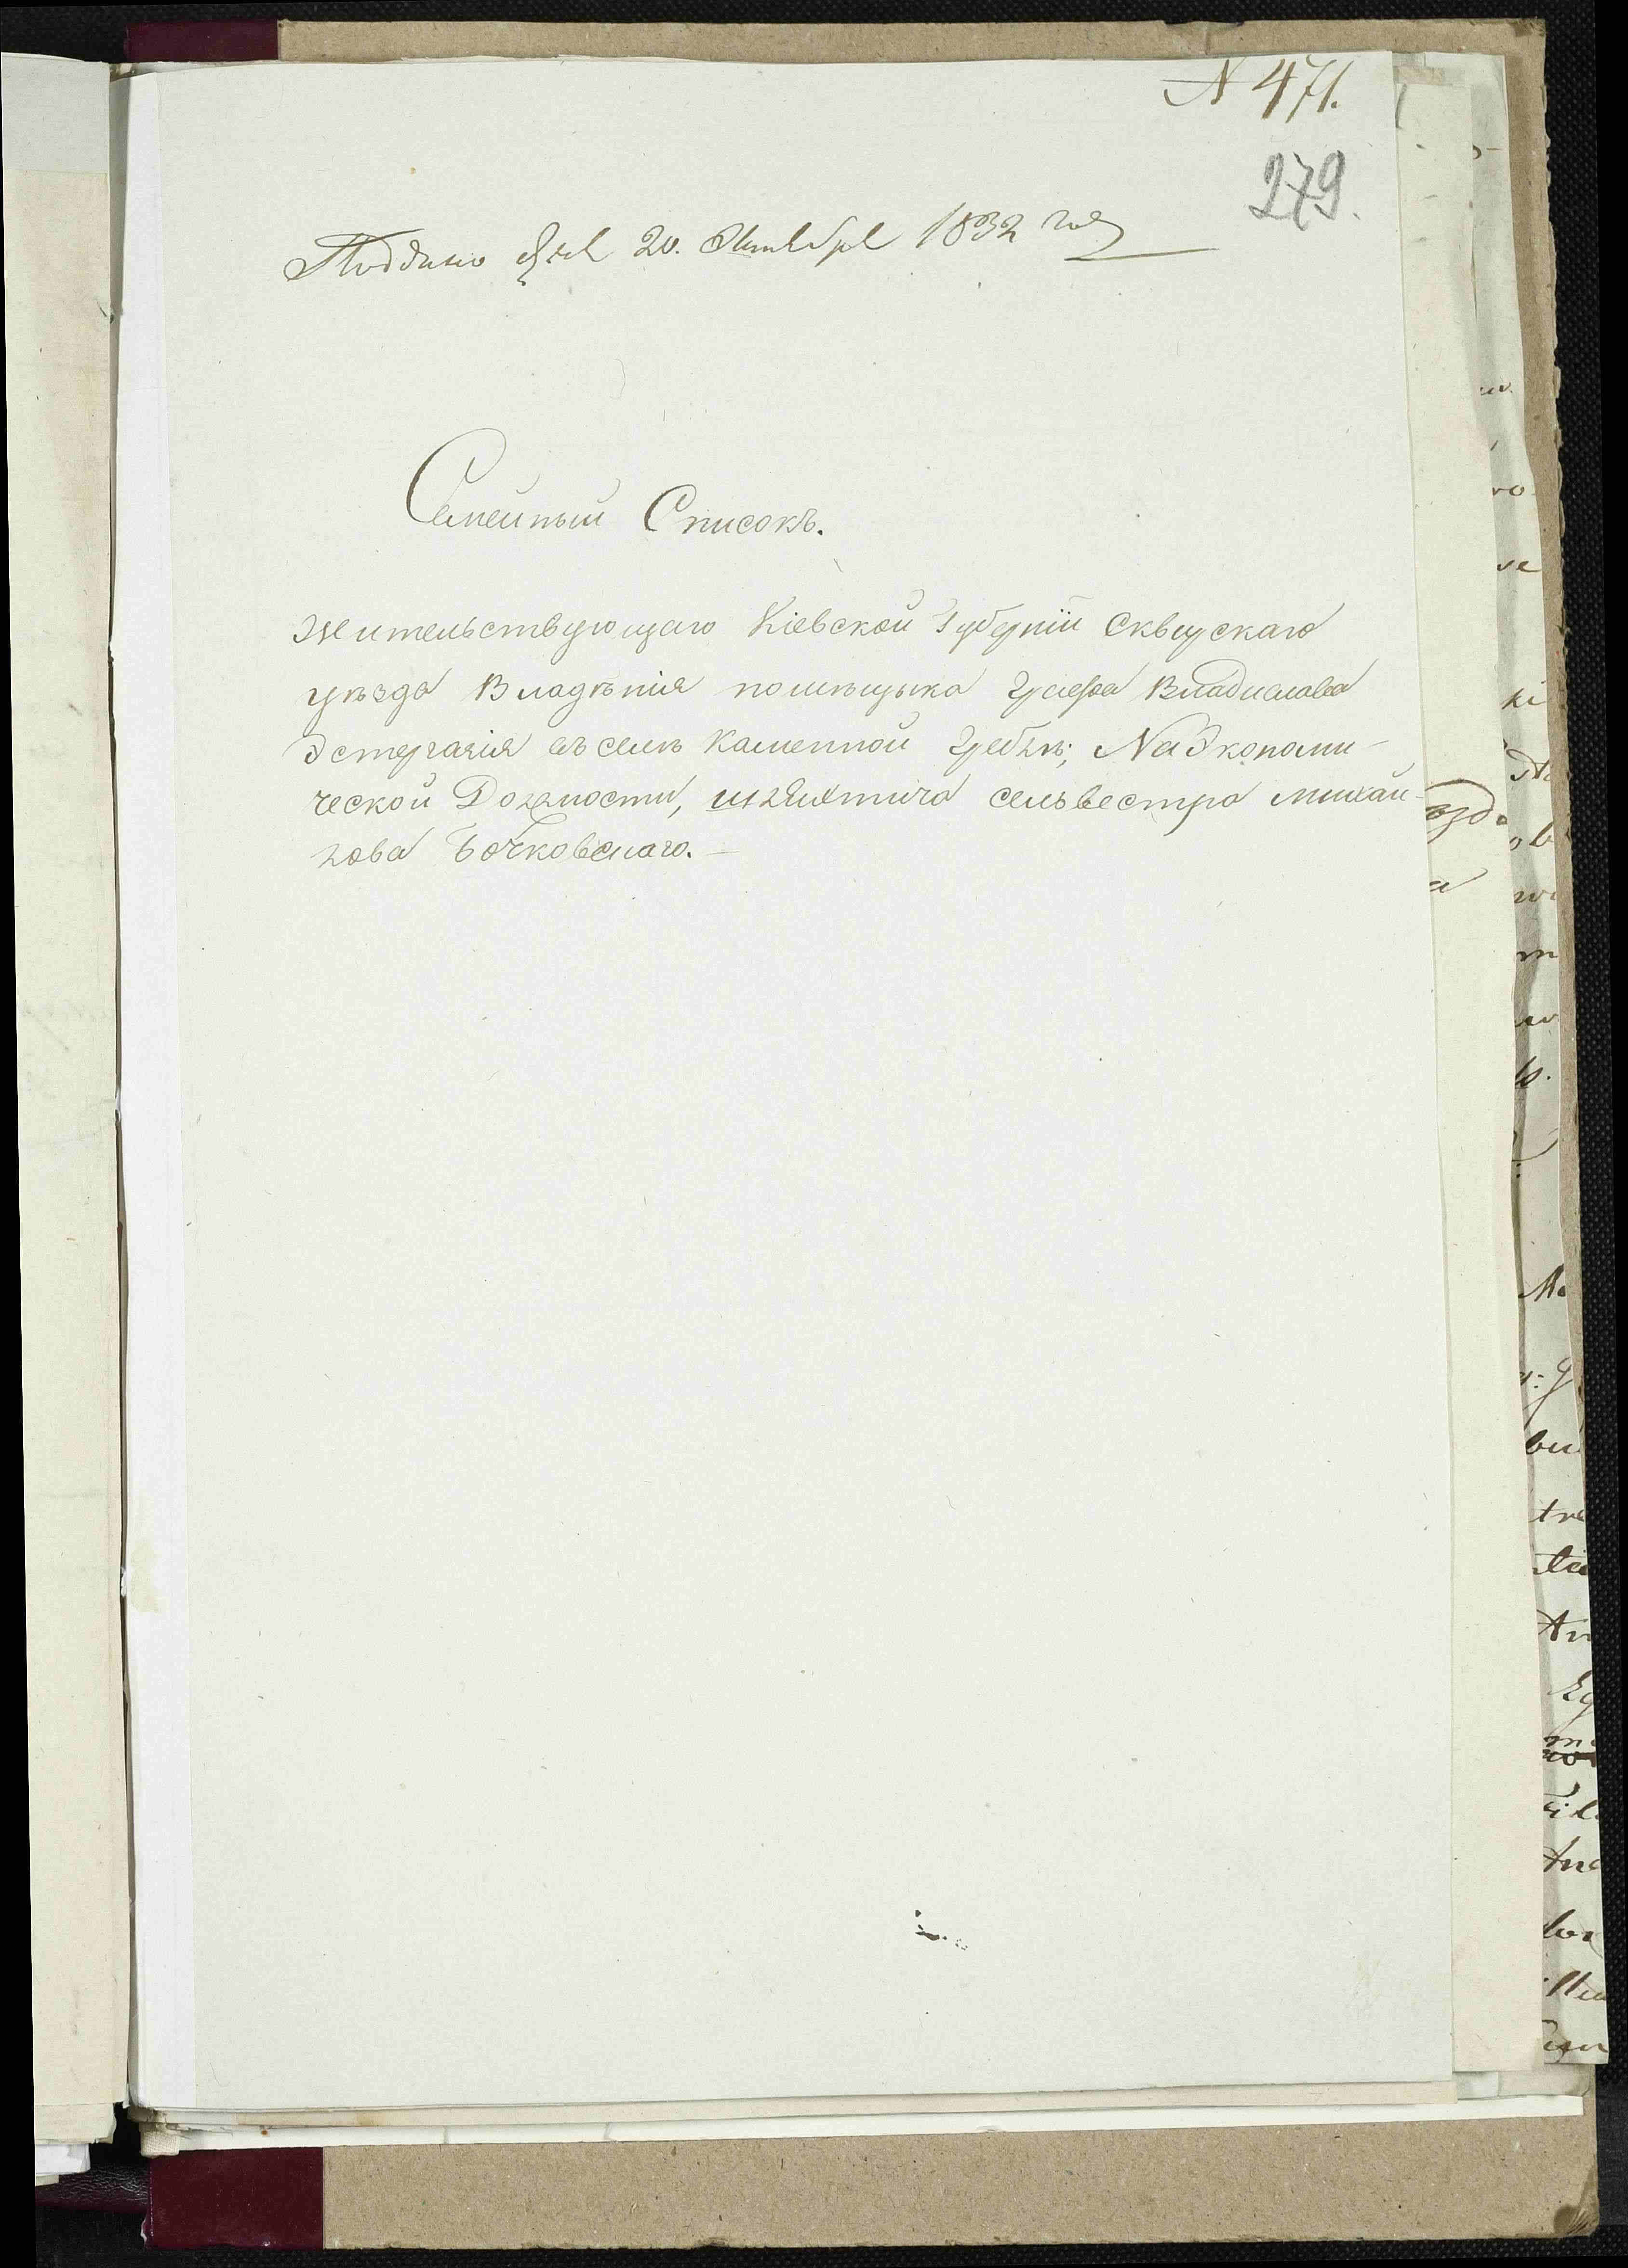 N 471.
279.
Поддано 20. Октября 1832 года
Семейный Списокъ.
Жительствующаго Кіевской Губерніи Сквирскаго
уѣзда Владѣнія помѣщыка Графа Владислава
Эстергазія въ селѣ Каменной Греблѣ; На Экономи-
ческой Должности, шляхтича Сельвестра Михай-
лова Бочковскаго.